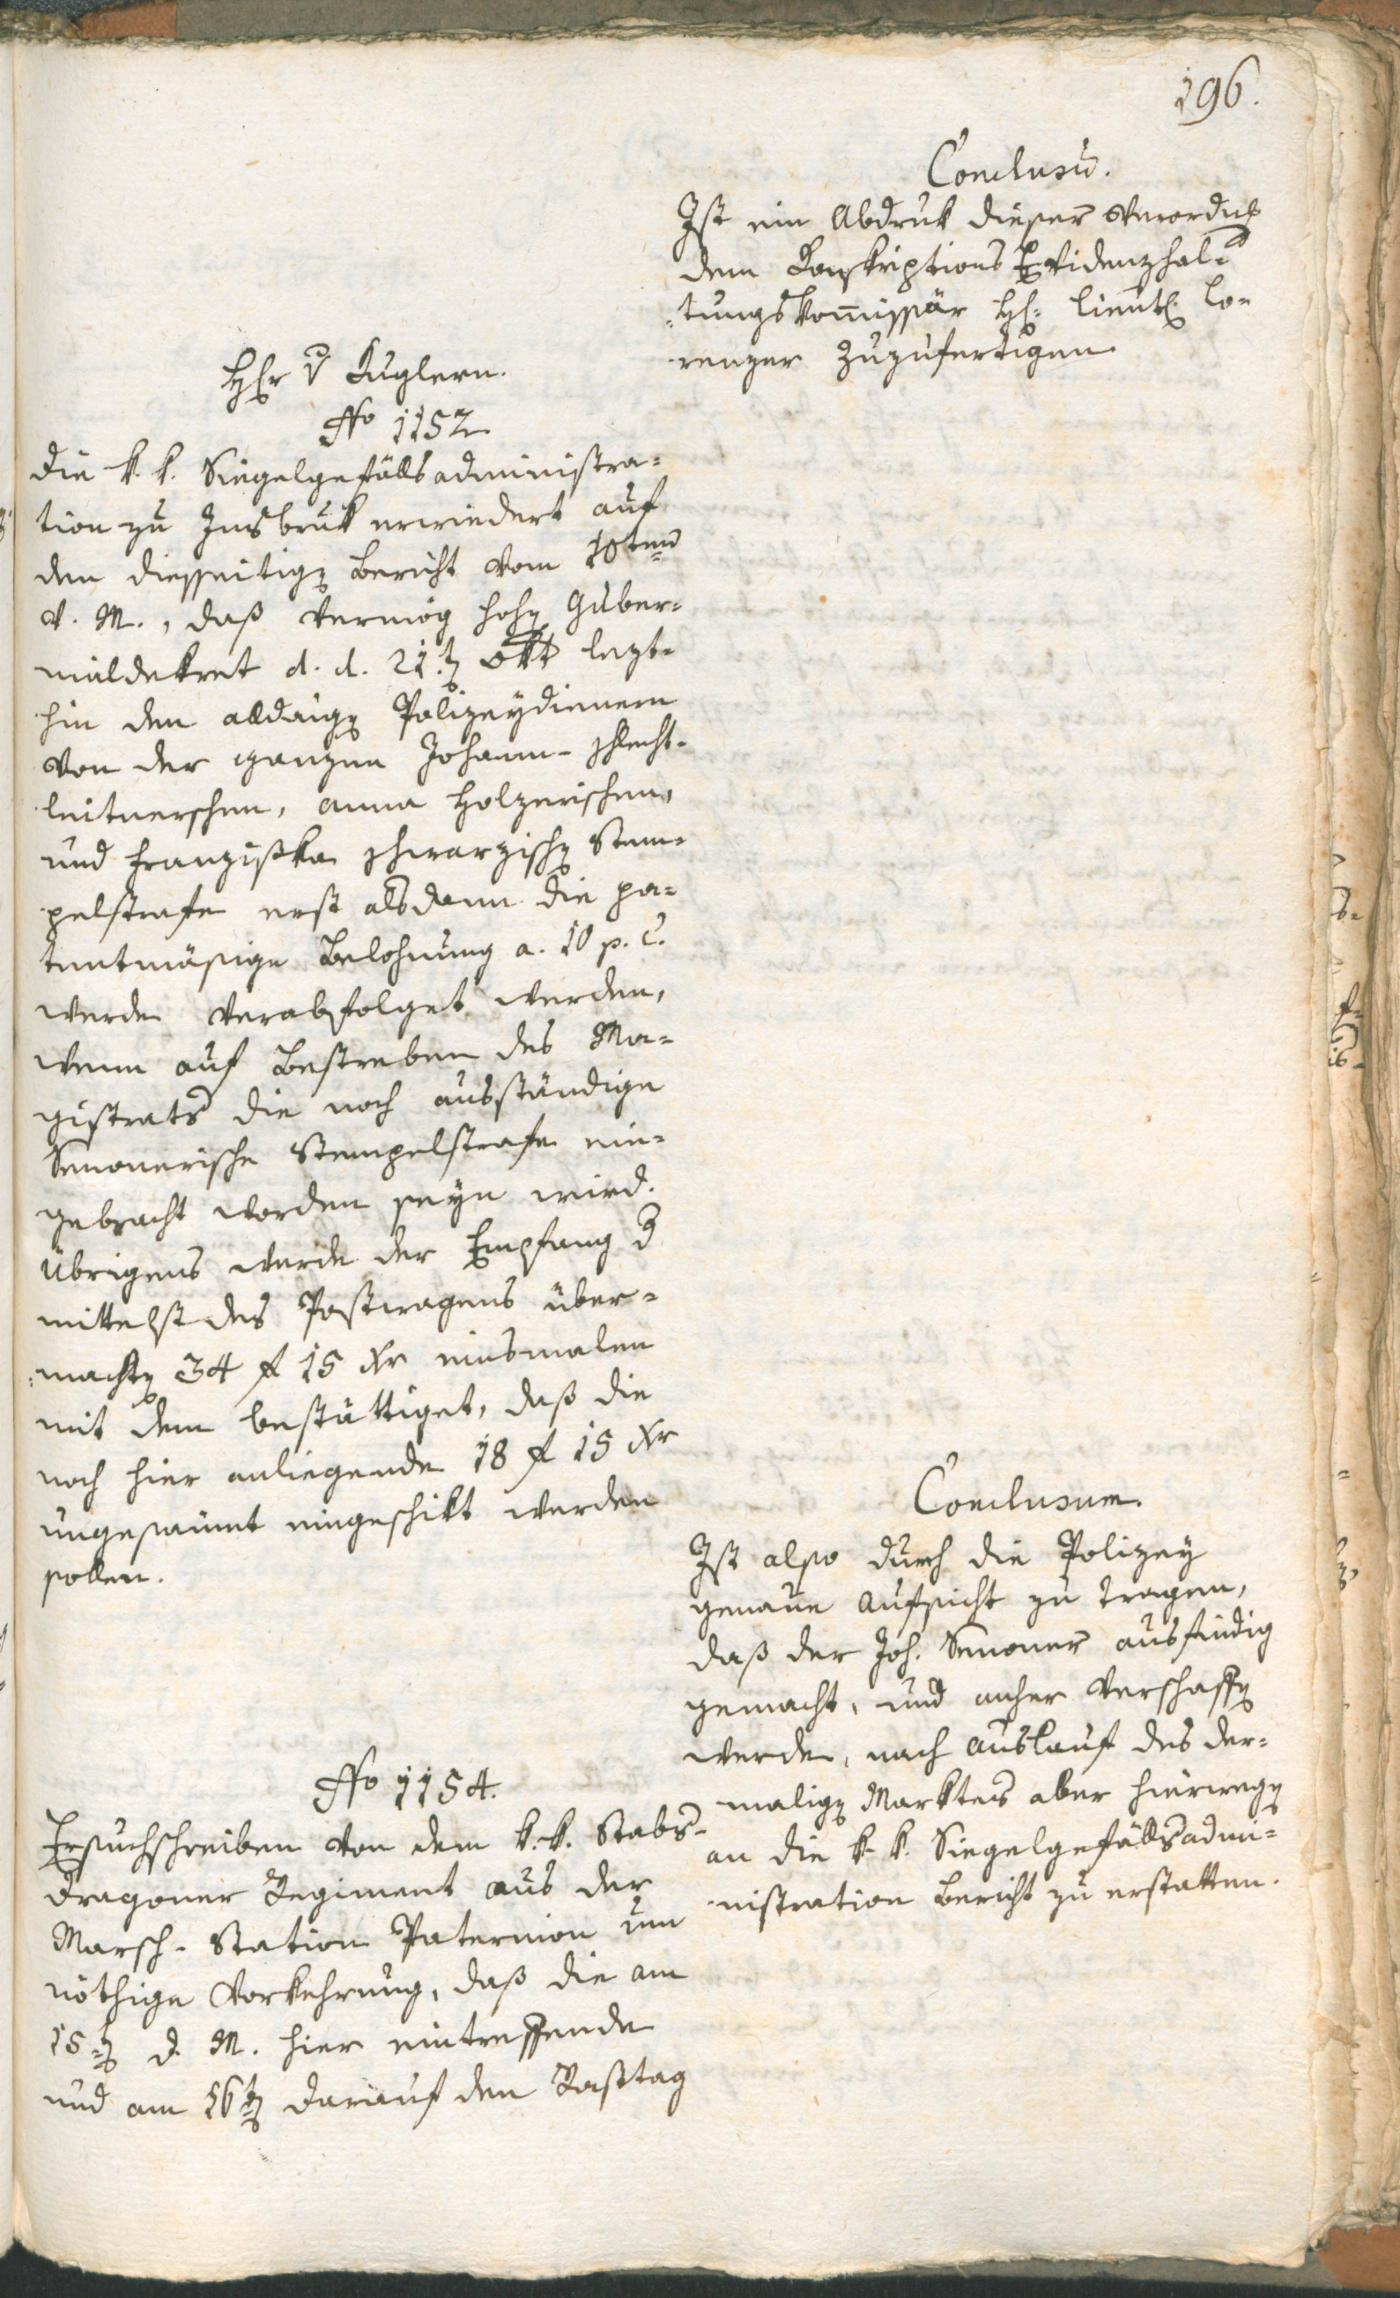 196.
Conclusū.
Ist ein Abdruk dieser Verordng
dem Konskriptions Evidenzhal-
tungskom̄issär H: Lieut: Lo-
renzer zuzufertigen
Hhr v Kuglern.
No 1152
Die k. k. Siegelgefällsadministra-
tion zu Insbruk erwiedert auf
den diesseitigen Bericht vom 18ten
v. M., daß vermög hohen Guber-
nialdekret d. d. 21.ten Okt letzt-
hin den alldaigen Polizeydienern
von der ganzen Johann- Schlecht-
leitnerschen, Anna Holzerischen,
und Franziska Schwarzischen Stem-
pelstrafe erst alsdann die pa-
tentmäsige Belohnung a. 10 p. C.
werde verabfolget werden,
wenn auf Bestreben des Ma-
gistrats die noch ausständige
Senonerische Stempelstrafe ein-
gebracht worden seyn wird.
Übrigens werde der Empfang d
mittelst des Postwagens über-
machten 34 f 15 Xr einsmalen
mit dem bestättiget, daß die
noch hier anliegende 18 f 15 Xr
ungesaumt eingeschikt werden
sollen.
Conclusum.
Ist also durch die Polizey
genaue Aufsicht zu tragen,
daß der Joh. Senoner ausfindig
gemacht, und anher verschaffen
werde, nach Auslauf des der-
maligen Marktes aber hierwegen
an die k. k. Siegelgefällsadmi-
nistration Bericht zu erstatten.
No 1154.
Ersuchschreiben von dem k. k. Stabs-
Dragoner Regiment aus der
Marsch- Station Paternion um
nöthige Vorkehrung, daß die am
15ten d. M. hier eintreffende
und am 16ten darauf den Rasttag